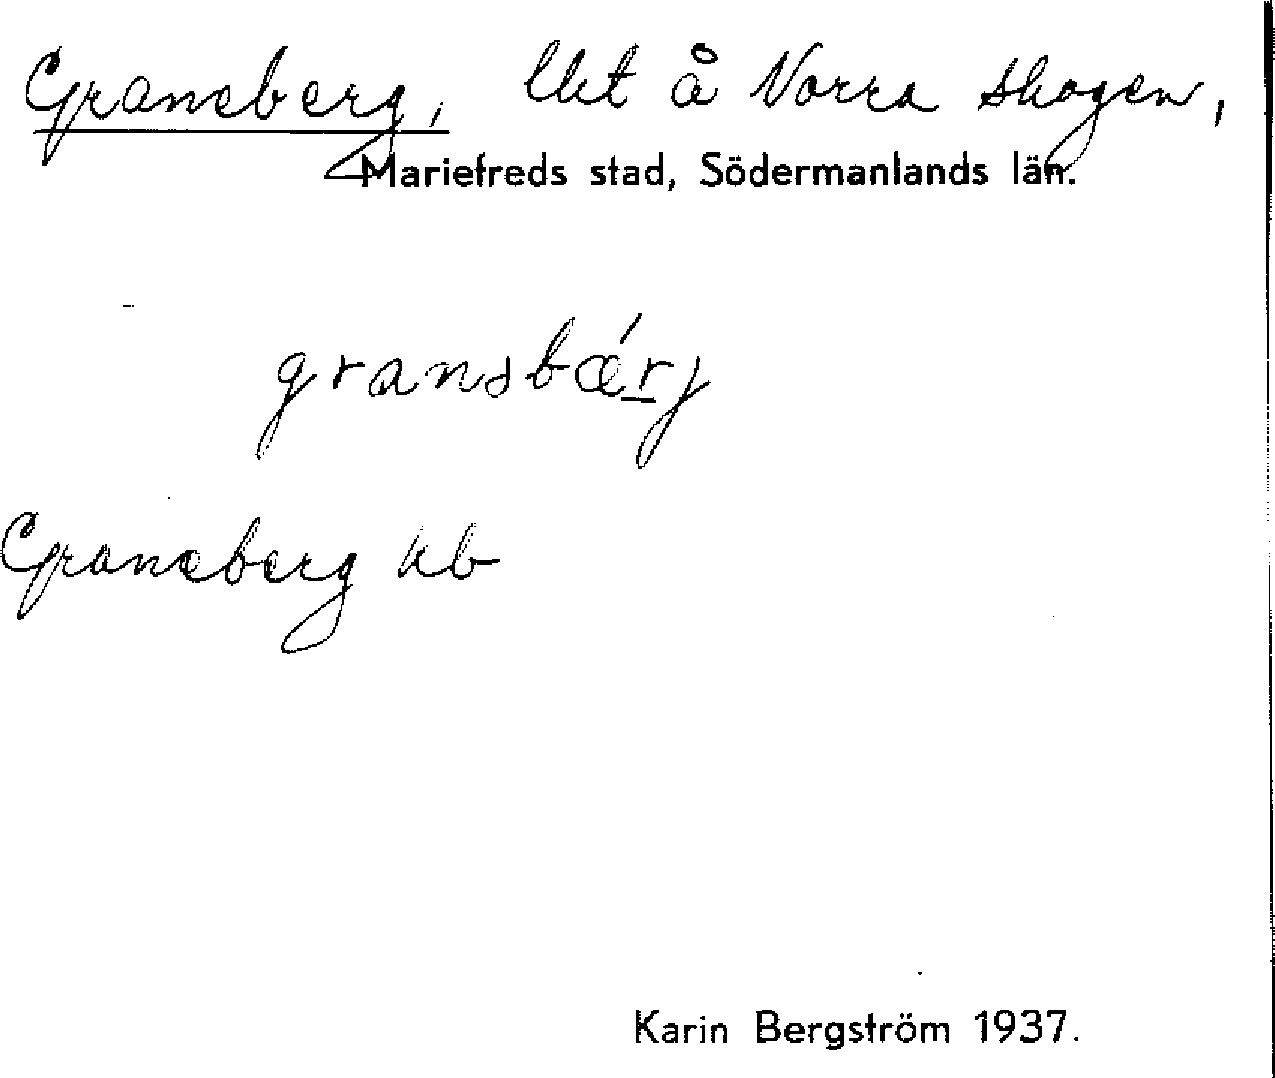 Graneberg, lht å Norra skogen,
Mariefreds stad, Södermanlands län.
granəbǽrj
Graneberg kb
Karin Bergström 1937.